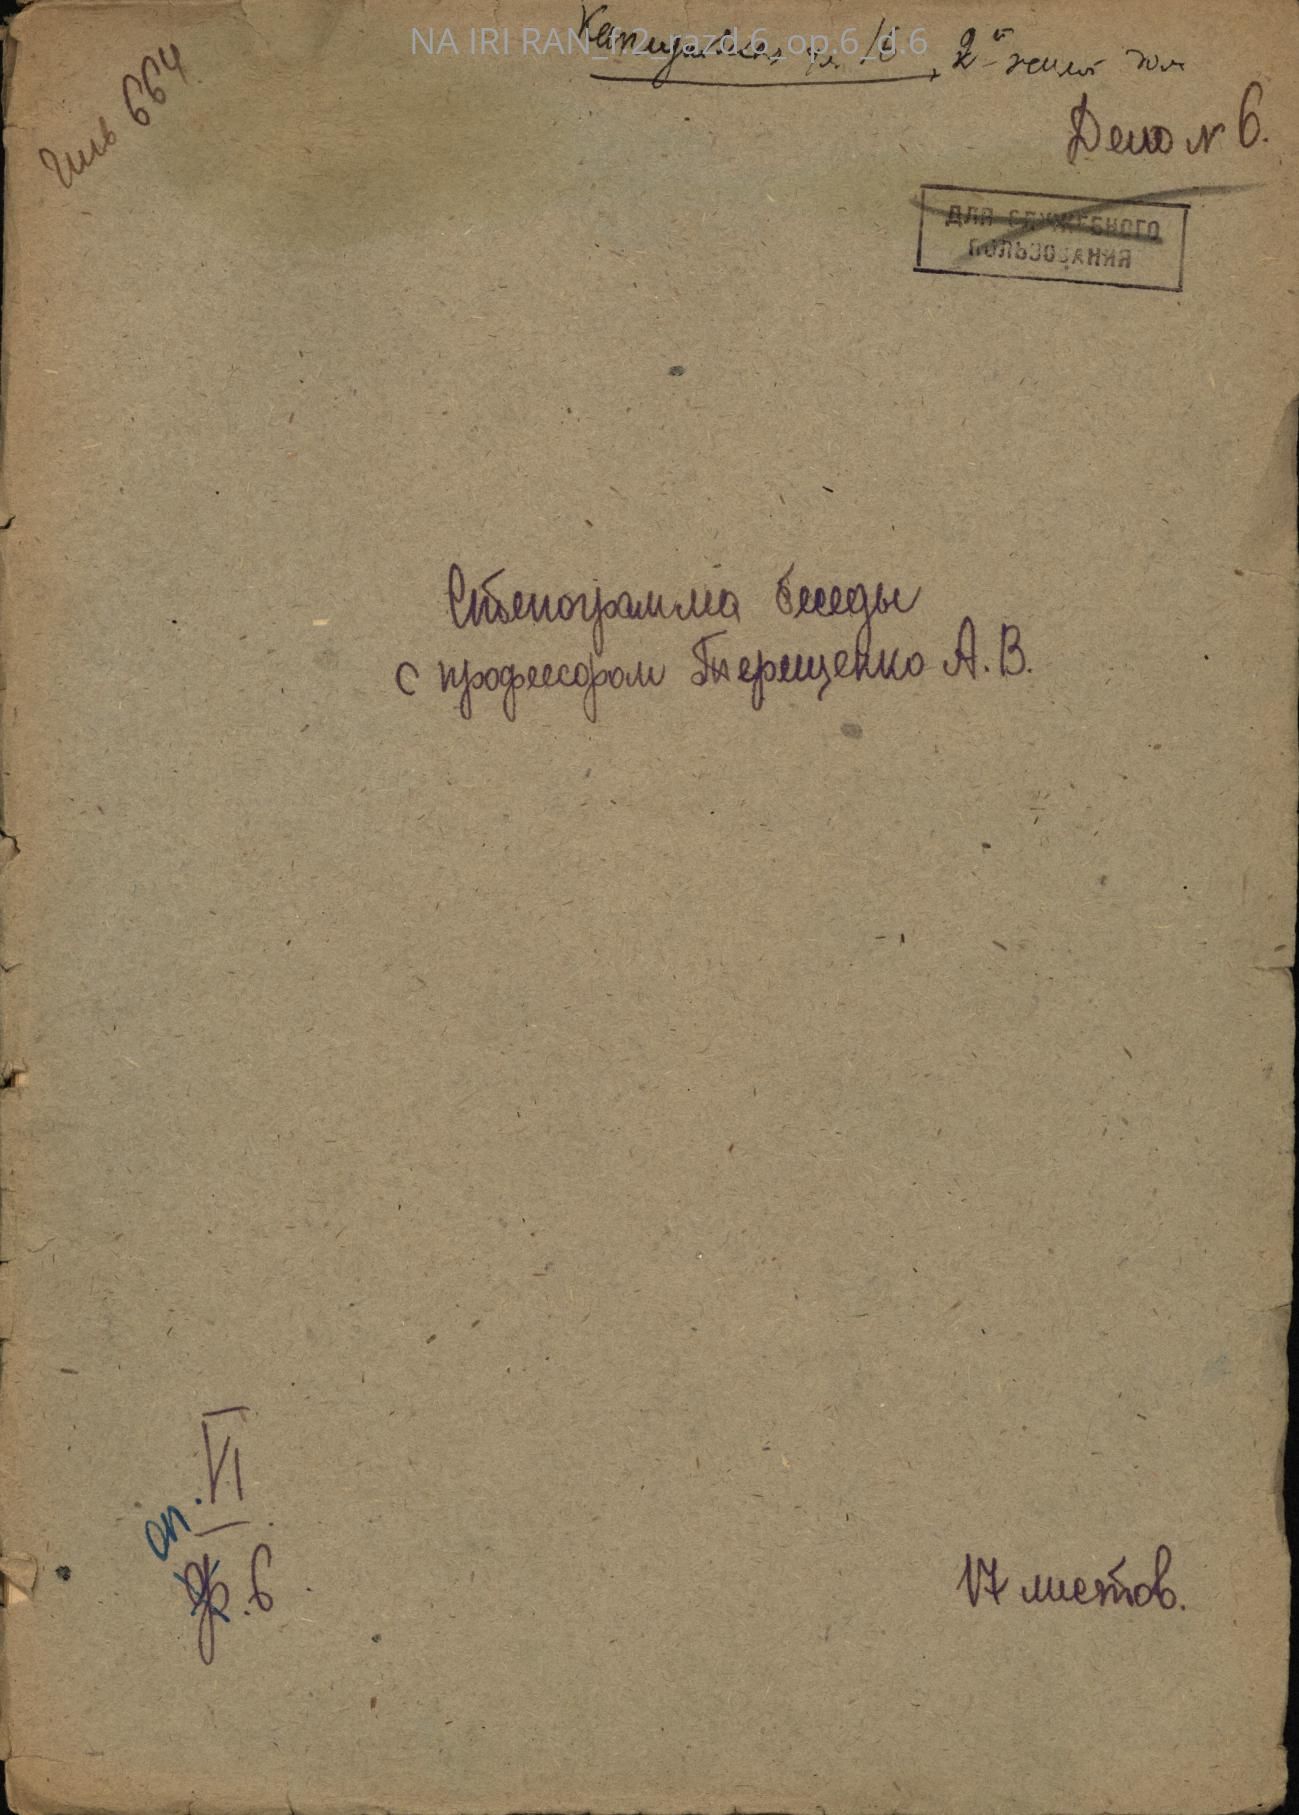 NA IRI RAN_f.2_razd.6_op.6_d.6
2й
Дело № 6.
Инв 664
ДЛЯ СЛУЖЕБНОГО
ПОЛЬЗОВАНИЯ
Стенограмма беседы
с профессором Терещенко А. В.
оп. VI
ф. 6
17 листов.